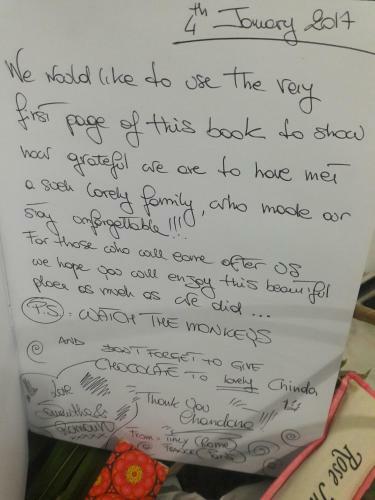 4th January 2017
We would like to use the very
first page of this book to show
how grateful we are to have met
a such lovely family, who made our
stay unforgettable!!!
For those who will come after us
we hope you will enjoy this beautiful
place as much as we did...
P.S: WATCH THE MONKEYS
AND DON'T FORGET TO GIVE
CHOCOLATE TO lovely Chinda,
Thank you
Chandana
From Italy (Rome)
to France (Paris)
Rose